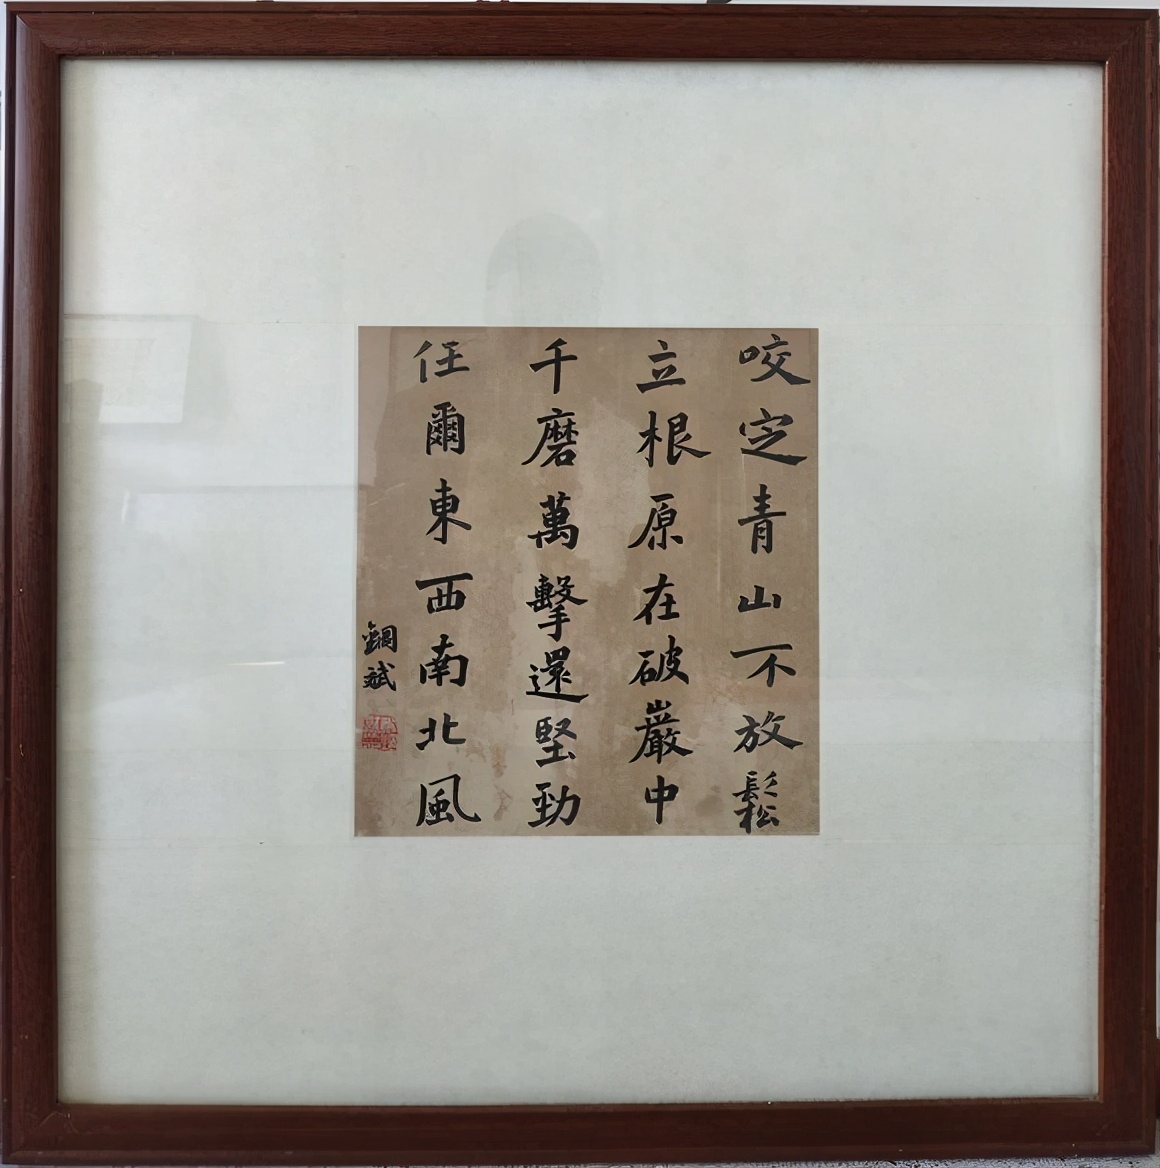 咬定青山不放鬆
立根原在破巖中
千磨萬擊還堅勁
任爾東西南北風
鋼斌